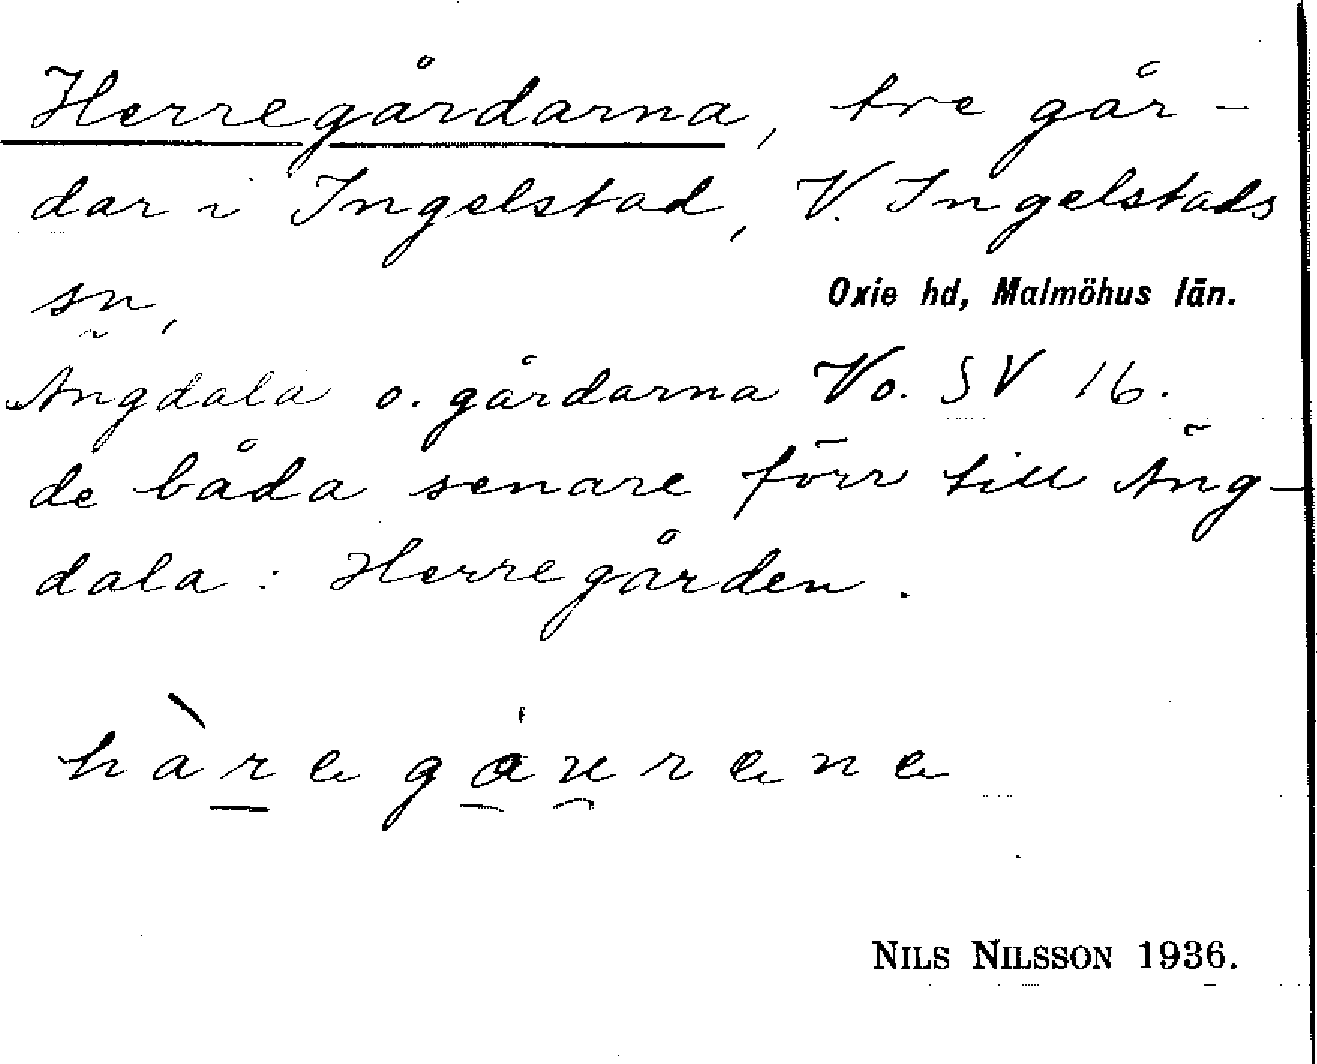 Herregårdarna, tre går-
dar i Ingelstad, V. Ingelstads
sn,
Oxie hd, Malmöhus län.
Ängdala o. gårdarna Vo. SV 16.
de båda senare förr till Äng-
dala: Herregården.
hàregáurene
NILS NILSSON 1936.